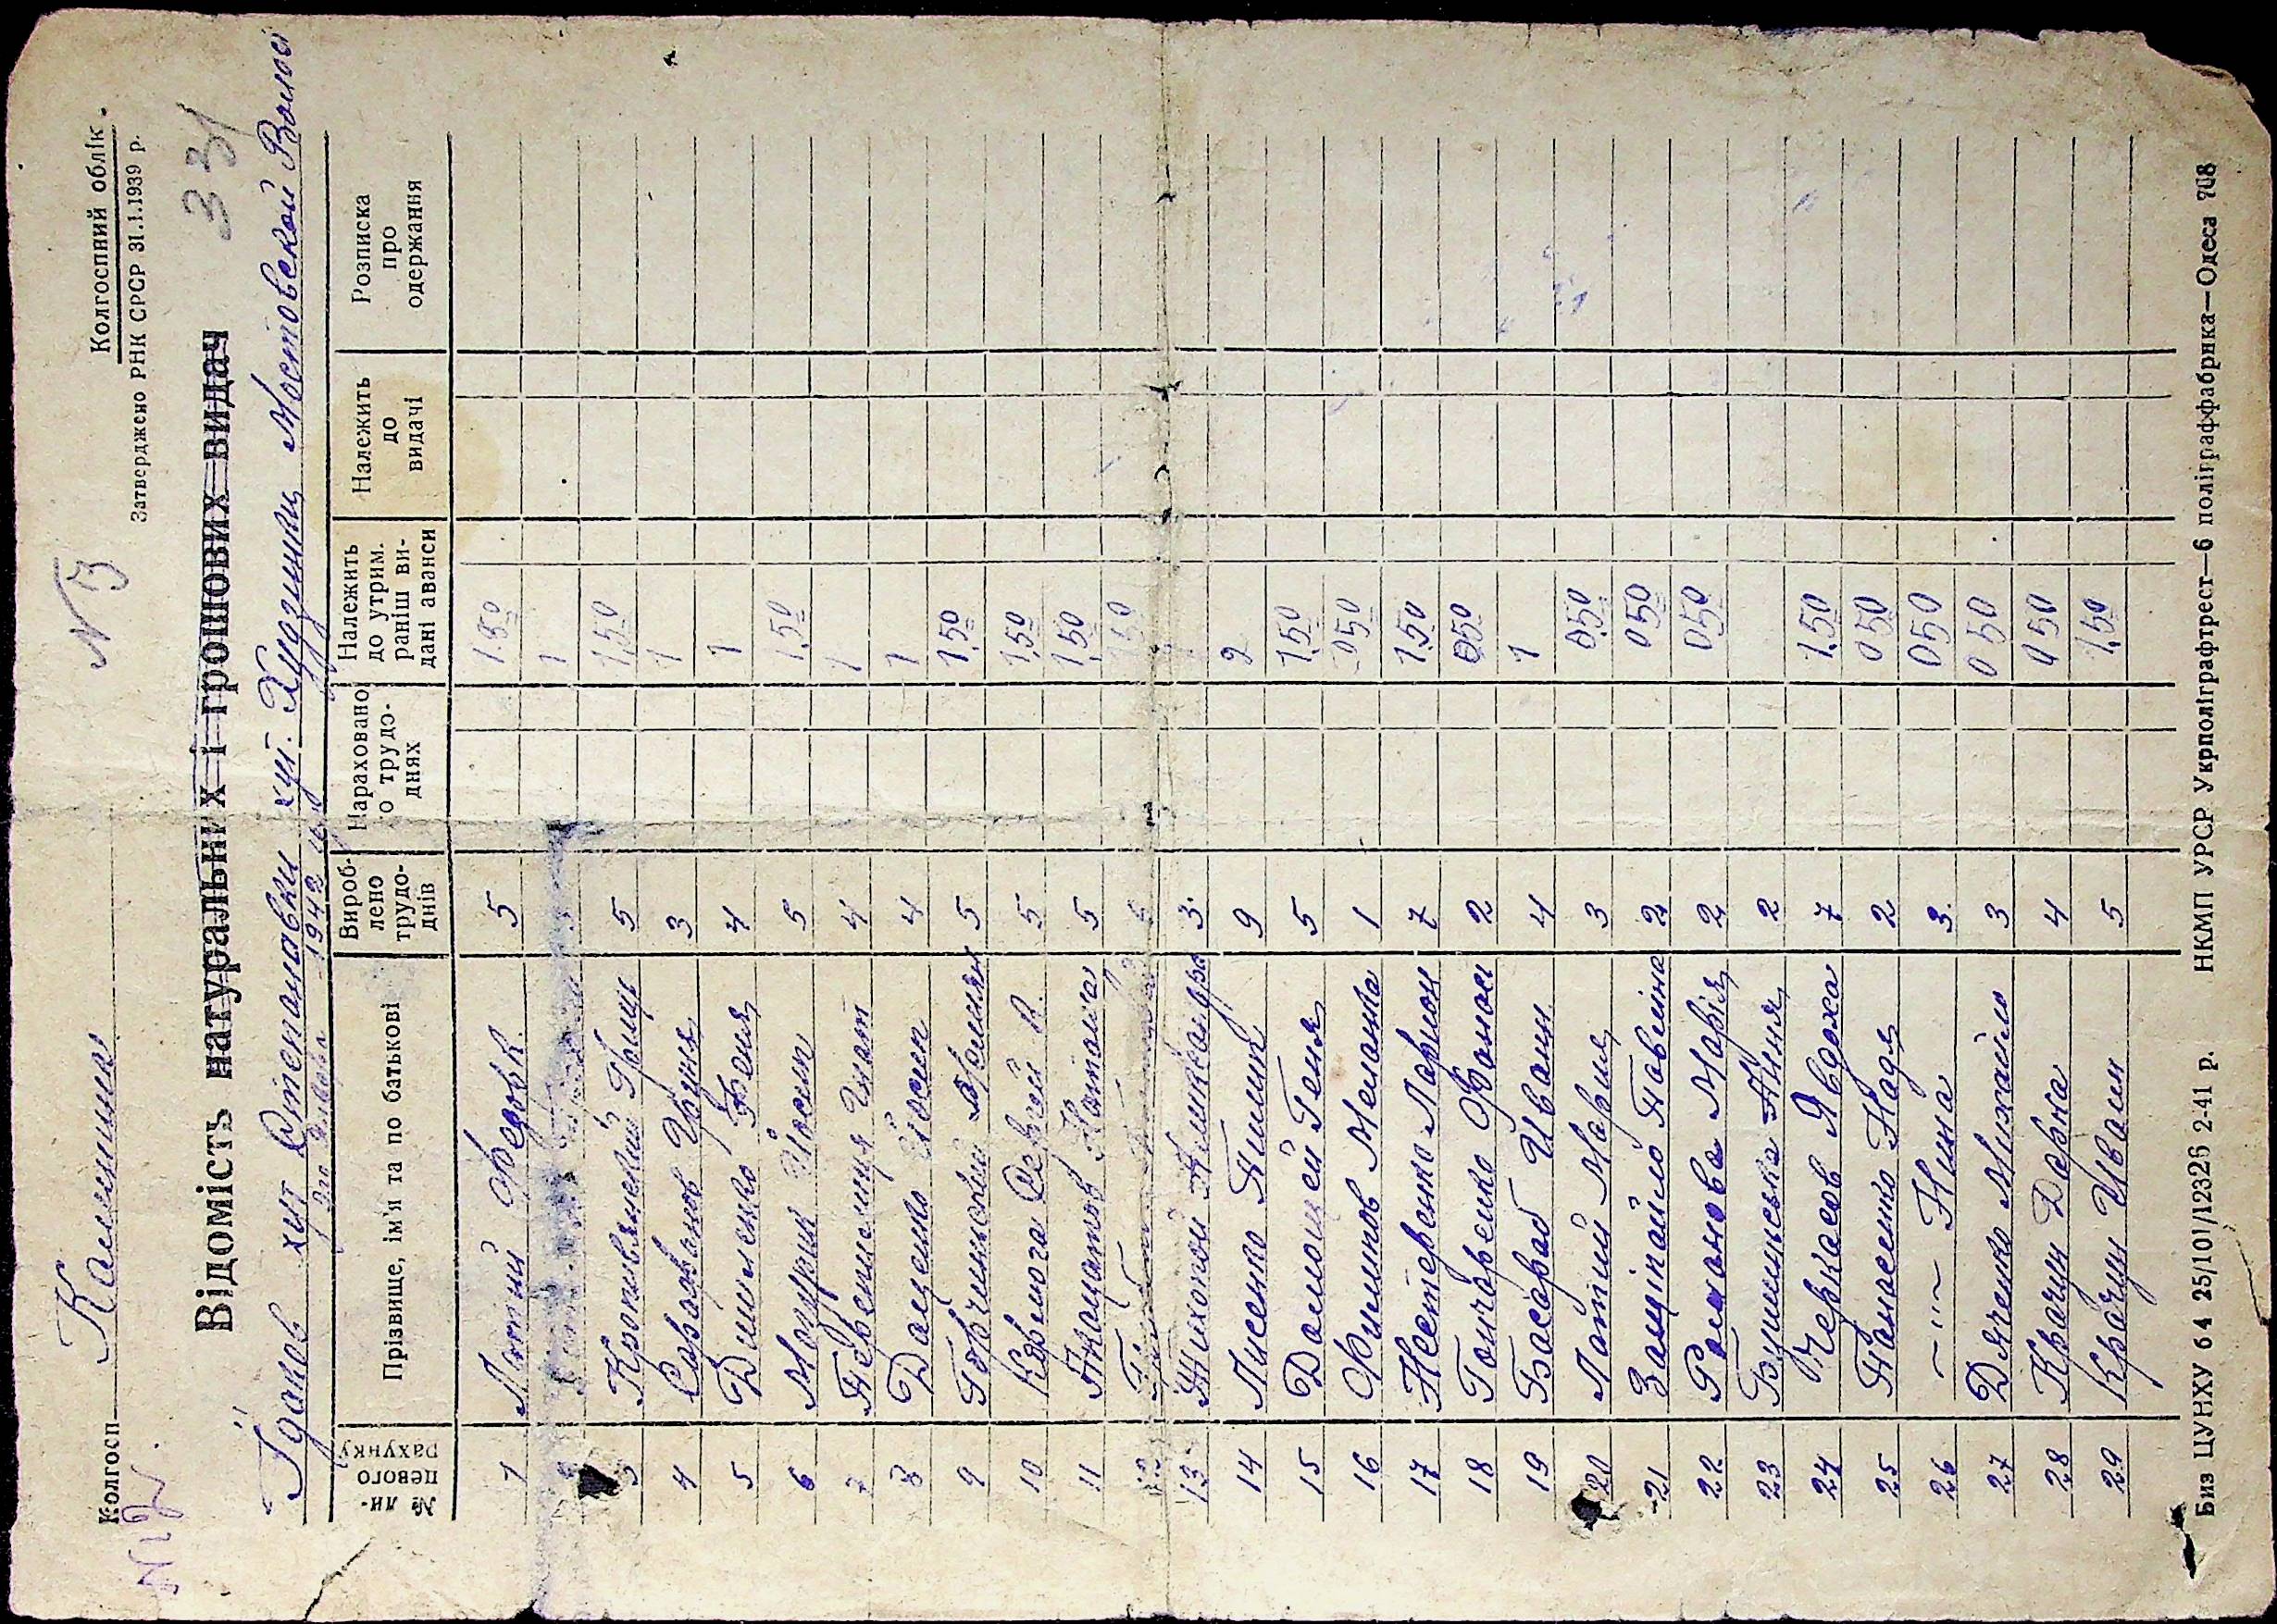 Колгоспний облік.
Затверджено РНК СРСР 31.1.1939 р.
№ 3
Колгосп Калинина
№ 12
33
Відомість натуральних і грошових видач
Їдаков хут Степановки хут. Худзинки Мостовской Волос
за Января 1942 г.
№ ли-цевого рахунку | Прізвище, ім'я та по батькові | Вироб-лено трудо-днів | Нараховано о трудо-днях | Належить до утрим. раніш ви-дані аванси | Належить до видачі | Розписка про одержання
1 Лютий Федовк. 5 1.50
1
3 Кропивлянский Гриць 5 1,50
4 Сарафанов Груня 3 1
5 Дишленко Феня 4 1
6 Мазурик Йосип 5 1,50
7 Терещенция Гнат 4 1
8 Даценко Йосип 4 1
9 Горчинский 5 1,50
10 Кармога Сергей К. 5 1,50
11 Akaцатов Наталка 5 1,50
12 5 1,50
13 Тихоной Александра 3
14 Лисенко Пилип 9 2
15 Далощей Геня 5 1,50
16 Филипов Меланка 1 050
17 Нестеренко Ларион 7 1,50
18 Гончаренко Фанаси 2 050
19 Басараб Иван 4 1
20 Латий Мария 3 0,50
21 Защіпайло Павлина 2 050
22 Романова Марія 2 050
23 Бушинська Анна 2
24 Черкасов Явдоха 7 1,50
25 Панасенко Надя 2 050
26 — " — Нина 3 050
27 Дяченко Михайло 3 050
28 Крачун Дарка 4 050
29 Крачун Иван 5 1,50
Биз ЦУНХУ 64 25/101/12326 2-41 р. НКМП УРСР Укрполіграфтрест—6 поліграффабрика—Одеса 708